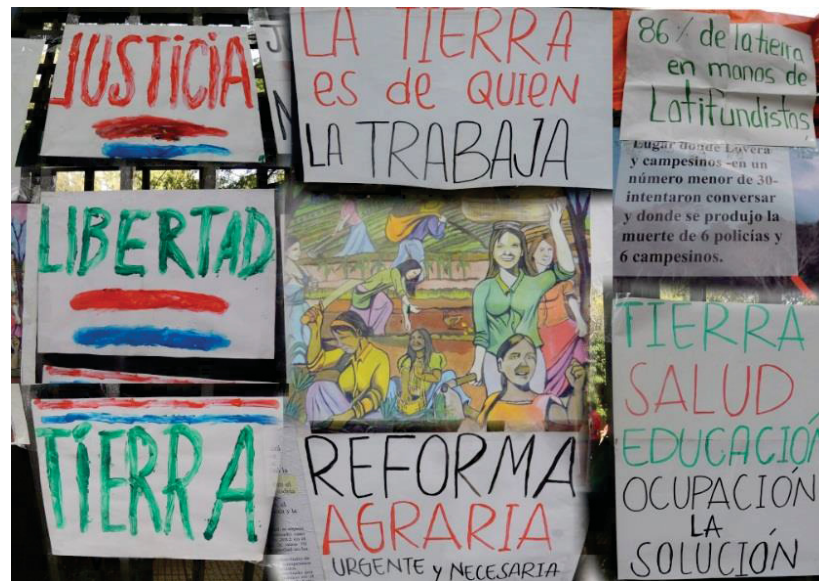 JUSTICIA
LIBERTAD
TIERRA
LA TIERRA
es de QUIEN
LA TRABAJA
REFORMA
AGRARIA
URGENTE y NECESARIA
86% de la tierra
en manos de
Latifundistas
Lugar donde Lovera
y campesinos -en un
número menor de 30-
intentaron conversar
y donde se produjo la
muerte de 6 policías y
6 campesinos.
TIERRA
SALUD
EDUCACIÓN
OCUPACIÓN
LA
SOLUCIÓN